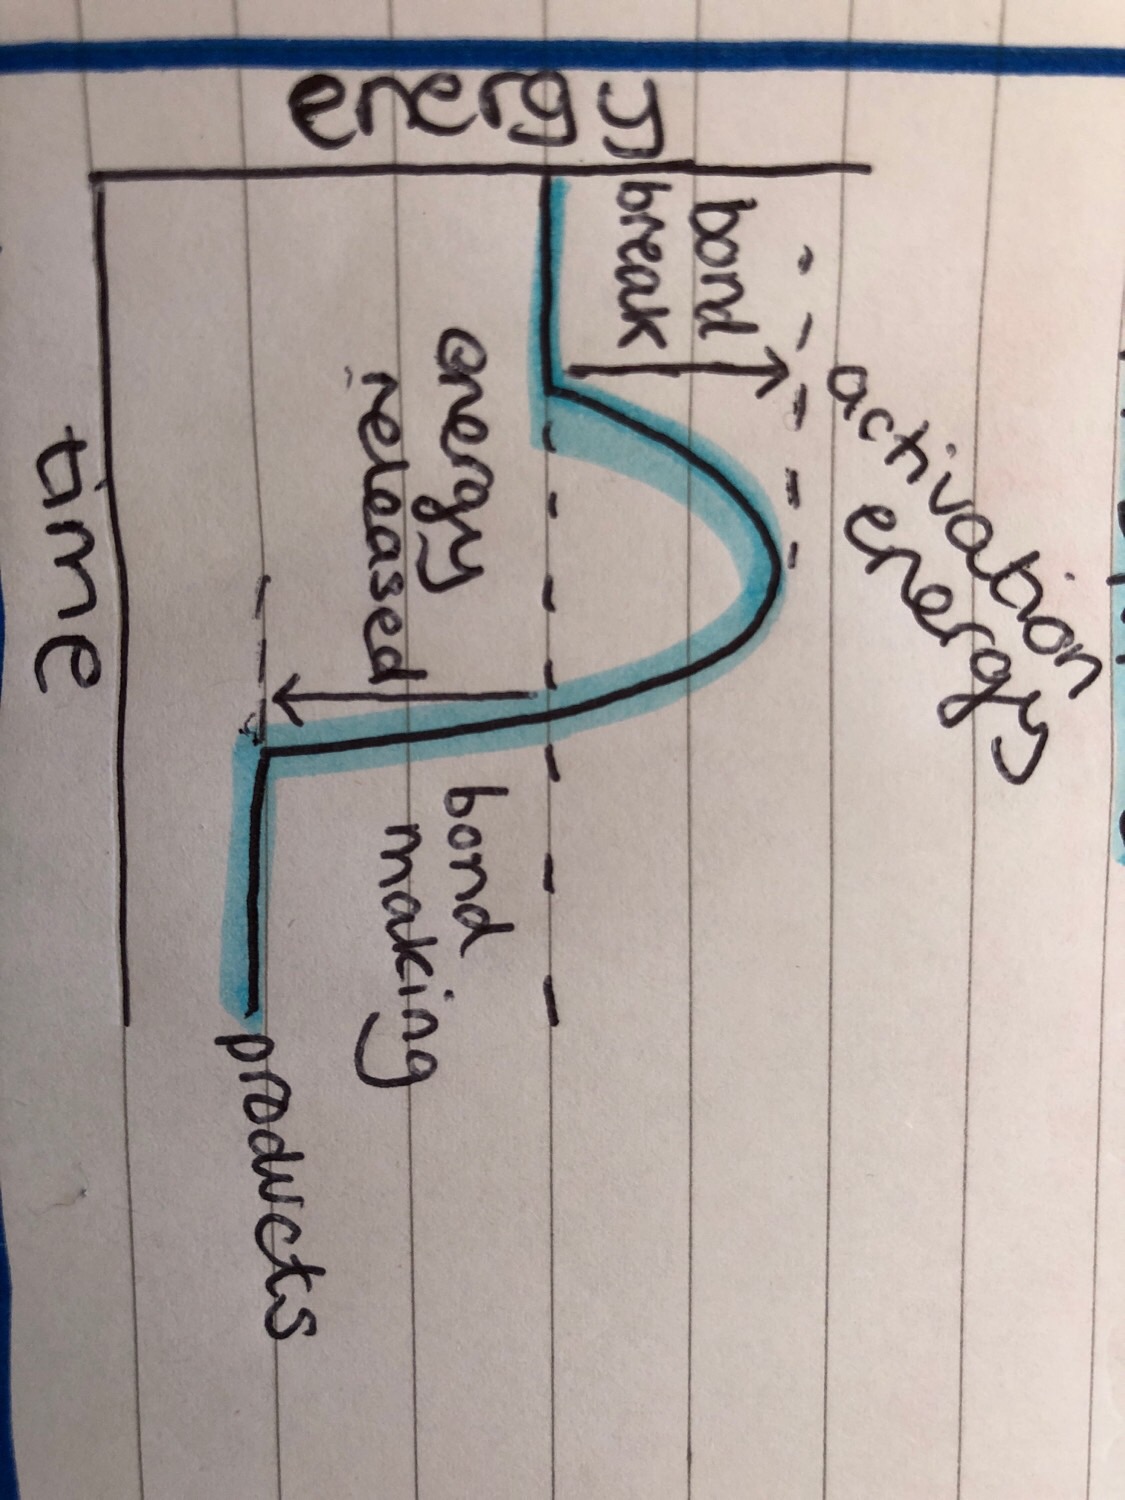 energy
bond
break
activation
energy
energy
released
bond
making
products
time